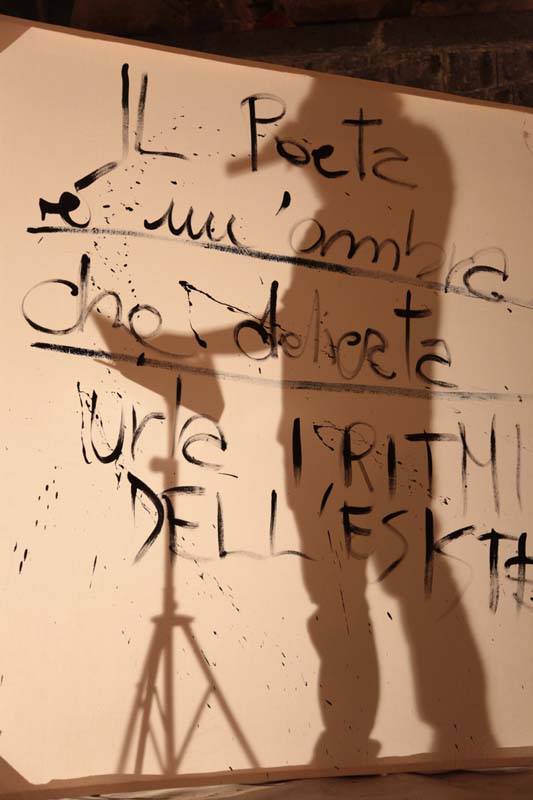 IL Poeta
è un'ombra
che delicata
urla I RITMI
DELL'